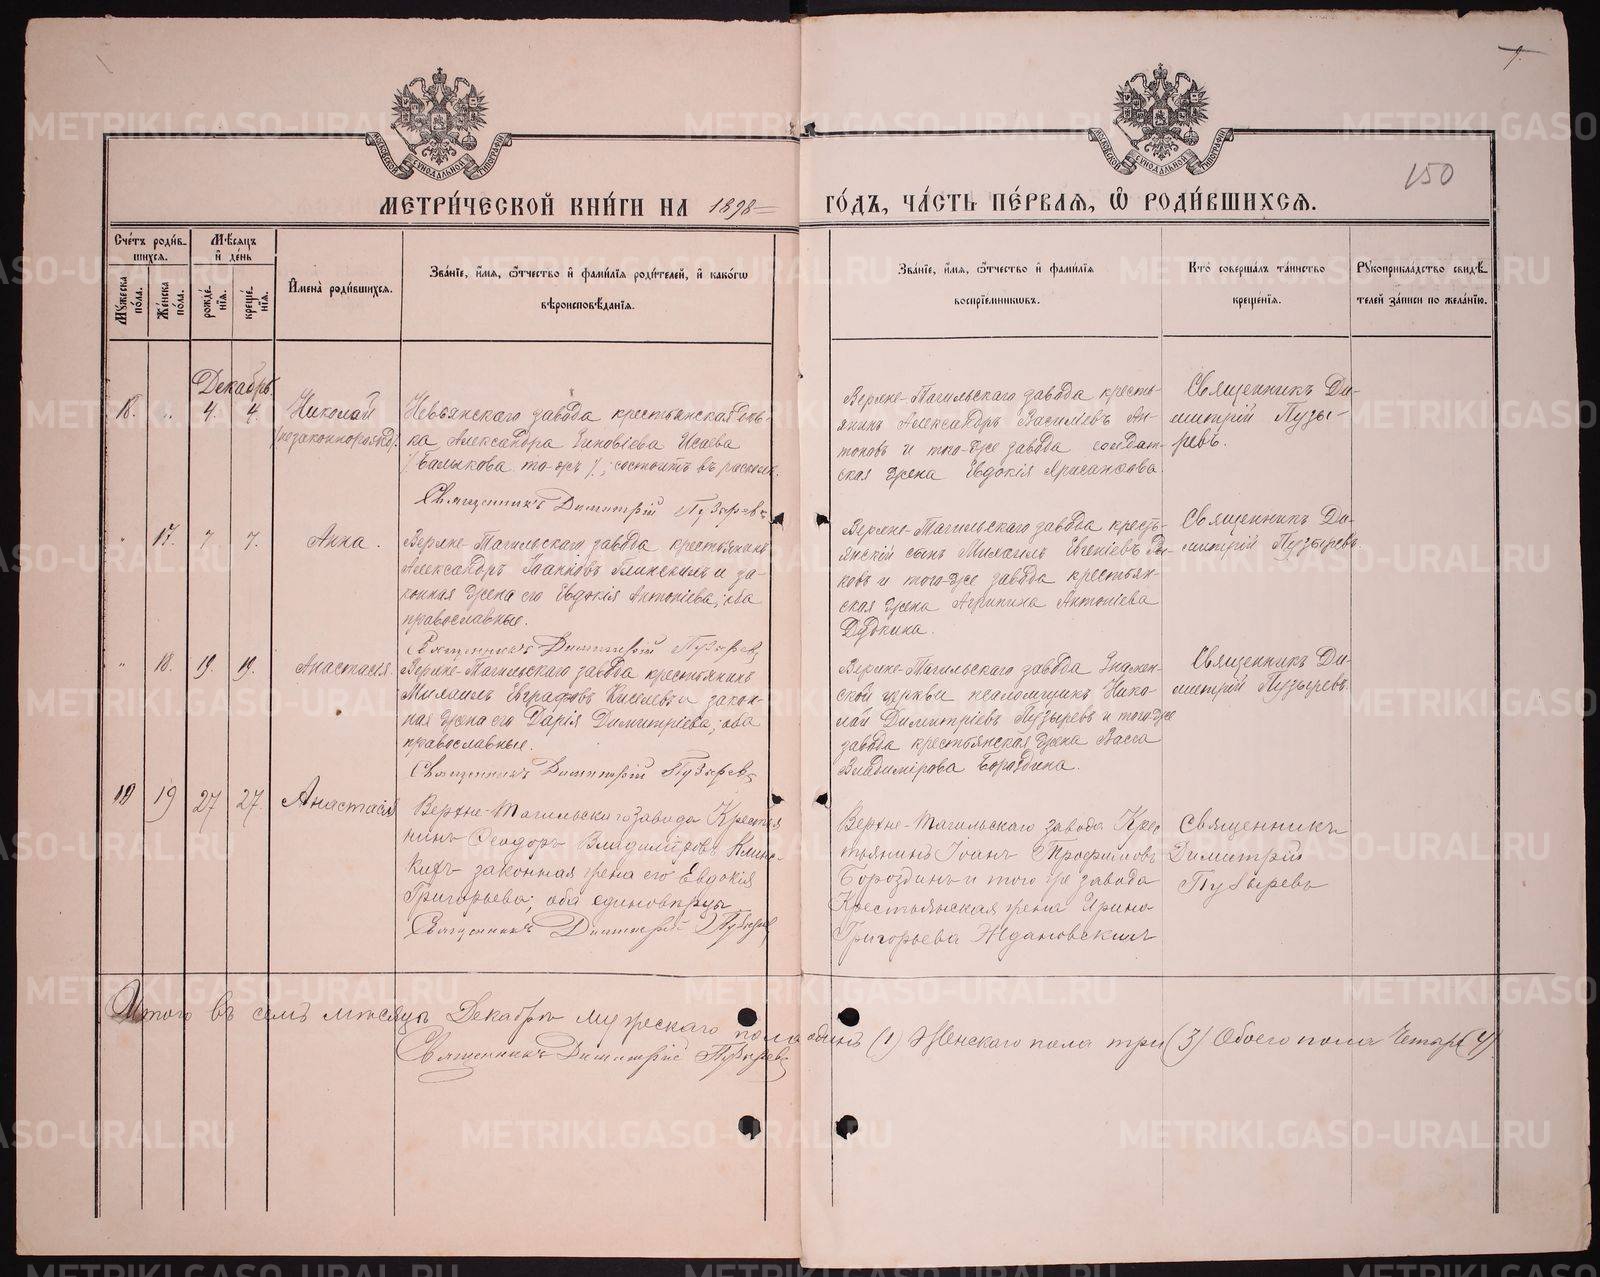 150
МЕТРИ́ЧЕСКОЙ КНИ́ГИ НА 1898 ГО́ДЪ, ЧА́СТЬ ПЕ́РВАЯ, Ѿ РОДИ́ВШИХСЯ.
Сче́тъ роди́вшихся.
Мꙋ́жеска по́ла.
Же́нска по́ла.
Мѣ́сяцъ и҆ де́нь
рожде́нїя.
креще́нїя.
И҆мена̀ роди́вшихся.
Зва́нїе, и҆́мя, ѻ҆́тчество и҆ фами́лїя роди́телей, и҆ како́гѡ
вѣроисповѣ́данїя.
Зва́нїе, и҆́мя, ѻ҆́тчество и҆ фами́лїя
воспрїе́мниковъ.
Кто̀ соверша́лъ та́инство
креще́нїя.
Рꙋкоприкла́дство свидѣ́-
телей за́писи по жела́нїю.
Декабрь
18. „ 4. 4. Николай
(незаконнорожд.)
Невьянскаго завода крестьянская доч-
ка Александра Зиновіева Исаева
(Балыкова тожъ); состоитъ въ расколѣ.
Священникъ Димитрій Пузыревъ
Верхне-Тагильскаго завода кресть-
янинъ Александръ Васильевъ Ан-
тоновъ и того-же завода солдат-
ская жена Евдокія
Священникъ Ди-
митрій Пузы-
ревъ.
„ 17. 7 7. Анна.
Верхне-Тагильскаго завода крестьянинъ
Александръ Глинскихъ и за-
конная жена его Евдокія Антоніева; оба
православные.
Священникъ Димитрій Пузыревъ
Верхне-Тагильскаго завода кресть-
янскій сынъ Михаилъ Евгеніевъ Ды-
ковъ и того-же завода крестьян-
ская жена Агрипина Антоніева
Дудкина.
Священникъ Ди-
митрій Пузыревъ
„ 18. 19. 19. Анастасія
Верхне-Тагильскаго завода крестьянинъ
Михаилъ Евграфовъ Киселевъ и закон-
ная жена его Дарія Димитріева; оба
православные.
Священникъ Димитрій Пузыревъ
Верхне-Тагильскаго завода Знамен-
ской церкви псаломщикъ Нико-
лай Димитріевъ Пузыревъ и того-же
завода крестьянская жена Васса
Владимірова Бороздина.
Священникъ Ди-
митрій Пузыревъ.
19 27 27. Анастасія
Верхне-Тагильскаго завода Крестья
нинъ Феодоръ Владиміровъ Глинс-
кихъ законная жена его Евдокія
Григорьева; оба единовѣрцы
Священникъ Димитрій Пузыревъ
Верхне-Тагильскаго завода Крес
тьянинъ Іоаннъ Трофимовъ
Бороздинъ и того же завода
Крестьянская жена Ирина
Григорьева Ждановскихъ
Священникъ
Димитрій
Пузыревъ
Итого въ семъ мѣсяцѣ Декабрѣ мужескаго пола одинъ (1) Женскаго пола три (3) Обоего пола Четыре (4)
Священникъ Димитрій Пузыревъ
METRIKI.GASO-URAL.RU